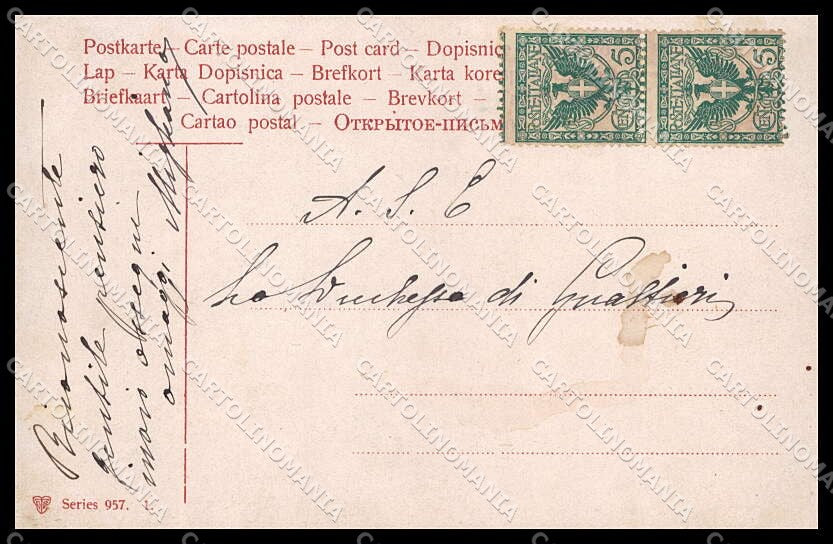 Postkarte – Carte postale – Post card – Dopisnic
Lap – Karta Dopisnica – Brefkort – Karta kore
Briefkaart – Cartolina postale – Brevkort –
Cartao postal – Открытое-письм
POSTE ITALIANE
5
CENTESIMI
POSTE ITALIANE
5
CENTESIMI
A. S. E
La Duchessa di Gualtieri
Riconoscente
gentile pensiero
invio ossequi
omaggi
Series 957. 1.
CARTOLINOMANIA